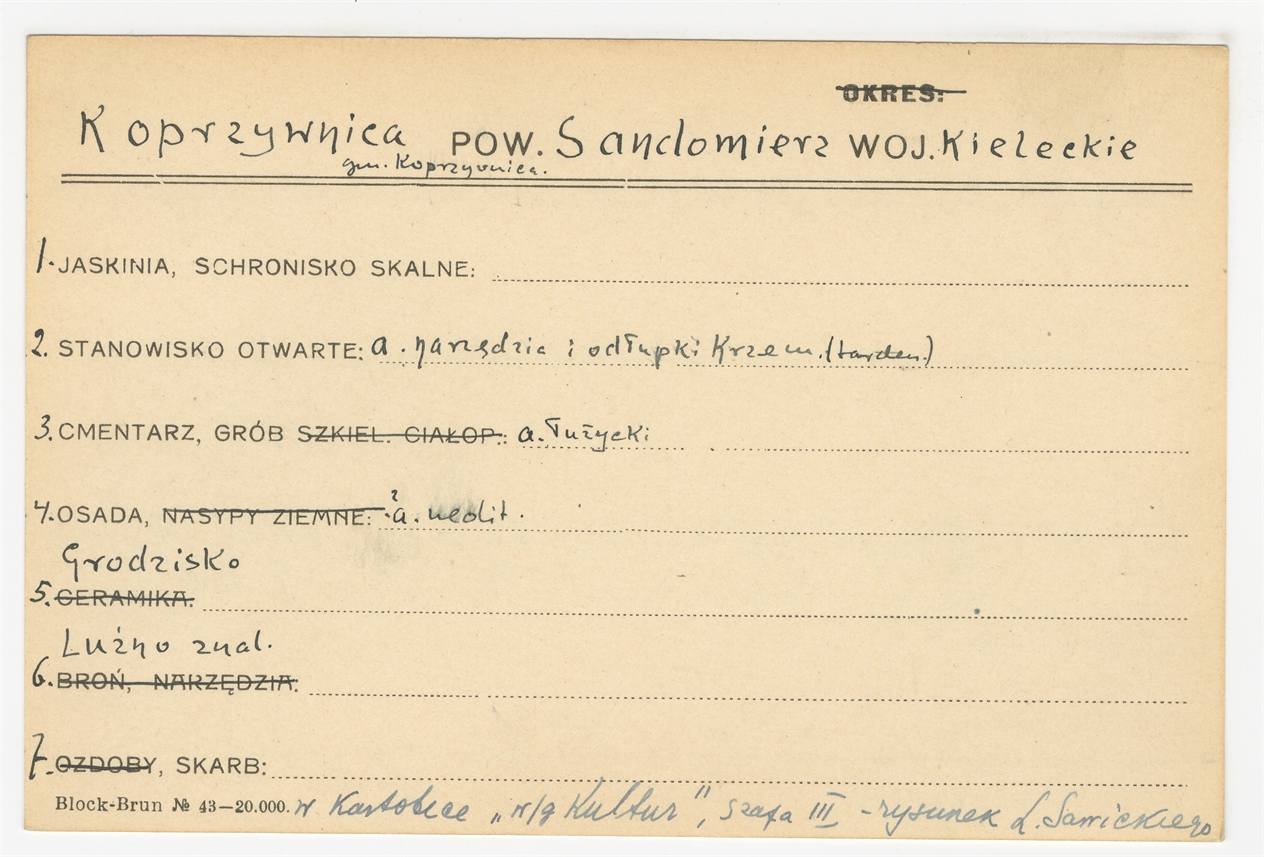 OKRES:
Koprzywnica POW. Sandomierz WOJ. Kieleckie
gm. Koprzywnica.
1. JASKINIA, SCHRONISKO SKALNE:
2. STANOWISKO OTWARTE: a. narzędzia i odłupki Krzem. (tarden.)
3. CMENTARZ, GRÓB SZKIEL. CIAŁOP.: a. Łużycki
4. OSADA, NASYPY ZIEMNE: ? a. neolit.
Grodzisko
5. CERAMIKA:
Luźno znal.
6. BROŃ, NARZĘDZIA:
7. OZDOBY, SKARB:
Block-Brun № 43—20.000. w Kartotece „w/g Kultur", szafa III - rysunek L. Sawickiego